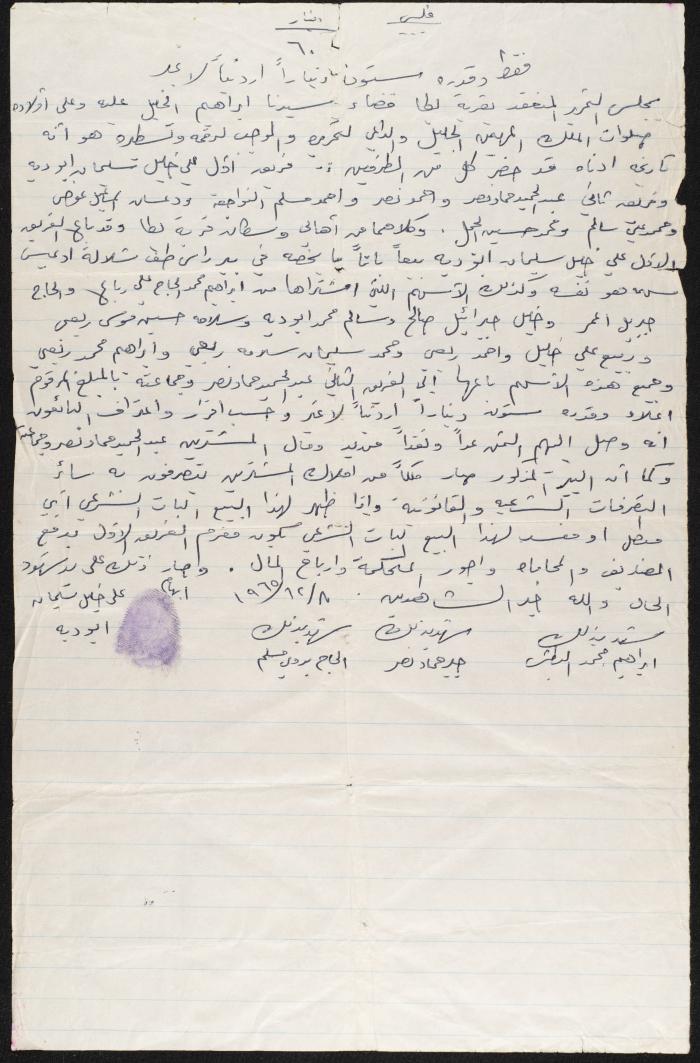 فلس دينار
٦٠
فقط وقدره ستون ديناراً اردنياً لا غير
بمجلس التحرير المنعقد بقرية يطا قضاء سيدنا ابراهيم الخليل عليه وعلى أولاده
صلوات الملك المهيمن الجليل والداعي لتحريره والموجب لرقمه وتسطيره هو أنه
تاريخه ادناه قد حضر كل من الطرفين فريق أول علي خليل سليمان ابوديه
وفريق ثاني عبدالحميد حماد نصر واحمد نصر واحمد مسلم النواجعة ودعسان اسماعيل عوض
ومحمد علي سالم ومحمد حسين الحمل . وكلاهما من أهالي وسكان قرية يطا وقد باع الفريق
الأول علي خليل سليمان ابوديه بيعاً باتاً ما يخصه في بير راس طف شلالة ادعيس
هو نفسه وكذلك الأسهم اللتي اشتراها من ابراهيم محمد الحاج علي رباع والحاج
جبريل العمر وخليل جبرائيل صالح وسالم محمد ابوديه وسلامه حسين موسى ربعي
وربيع علي خليل واحمد ربعي ومحمد سليمان سلامه ربعي وابراهيم محمد ربعي
وجميع هذه الأسهم باعها الى الفريق الثاني عبدالحميد حماد نصر وجماعته بالمبلغ المرقوم
اعلاه وقدره ستون ديناراً أردنياً لا غير وحسب اقرار واعتراف البائعون
انه وصل اليهم الثمن عداً ونقداً من يد ومال المشترين عبدالحميد حماد نصر وجماعته
وكما أن البير المذكور صار ملكاً من املاك المشترين يتصرفون به سائر
التصرفات الشرعيه والقانونية وإذا ظهر لهذا البيع البات الشرعي أي
مبطل او مفسد لهذا البيع البات الشرعي يكون مغرم الفريق الأول بدفع
المصاريف والمحاماه واجور المحكمة وارباح المال . وصار ذلك على يد شهود
الحال والله خير الشاهدين . ١٩٦٥/١٢/٨ ابهام علي خليل سليمان
ابوديه
شهد بذلك شهد بذلك شهد بذلك
ابراهيم محمد جبر حماد نصر الحاج بدوي مسلم